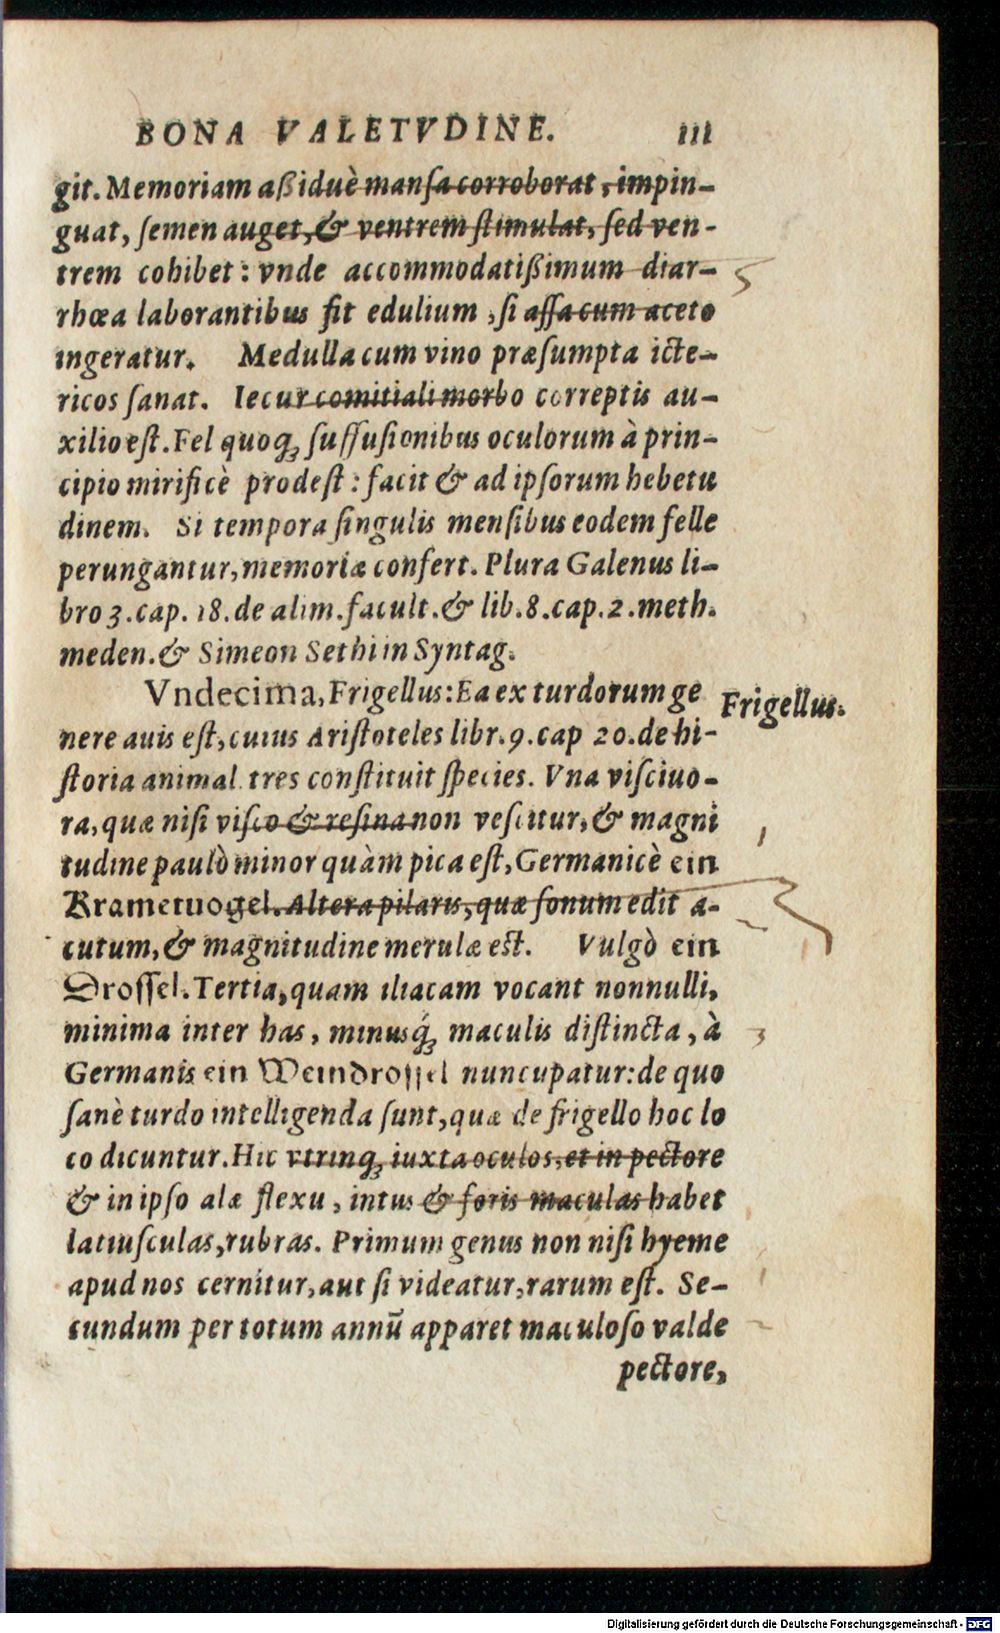 BONA VALETVDINE. 111
git. Memoriam aßiduè mansa corroborat, impin-
guat, semen auget, & ventrem stimulat, sed ven-
trem cohibet: vnde accommodatißimum diar-
rhœa laborantibus fit edulium, si assa cum aceto
ingeratur. Medulla cum vino præsumpta icte-
ricos sanat. Iecur comitiali morbo correptis au-
xilio est. Fel quoq; suffusionibus oculorum à prin-
cipio mirificè prodest: facit & ad ipsorum hebetu
dinem. Si tempora singulis mensibus eodem felle
perungantur, memoriæ confert. Plura Galenus li-
bro 3. cap. 18. de alim. facult. & lib. 8. cap. 2. meth.
meden. & Simeon Sethi in Syntag.
Vndecima, Frigellus: Ea ex turdorum ge
Frigellus.
nere auis est, cuius Aristoteles libr. 9. cap 20. de hi-
storia animal. tres constituit species. Vna visciuo-
ra, quæ nisi visco & resina non vescitur, & magni
tudine paulò minor quàm pica est, Germanicè ein
Krametuogel. Altera pilaris, quæ sonum edit a-
cutum, & magnitudine merulæ est. Vulgò ein
Drossel. Tertia, quam iliacam vocant nonnulli,
minima inter has, minusq́; maculis distincta, à
Germanis ein Weindrossel nuncupatur: de quo
sanè turdo intelligenda sunt, quæ de frigello hoc lo
co dicuntur. Hic vtrinq; iuxta oculos, et in pectore
& in ipso alæ flexu, intus & foris maculas habet
latiusculas, rubras. Primum genus non nisi hyeme
apud nos cernitur, aut si videatur, rarum est. Se-
cundum per totum annū apparet maculoso valde
pectore,
Digitalisierung gefördert durch die Deutsche Forschungsgemeinschaft - DFG